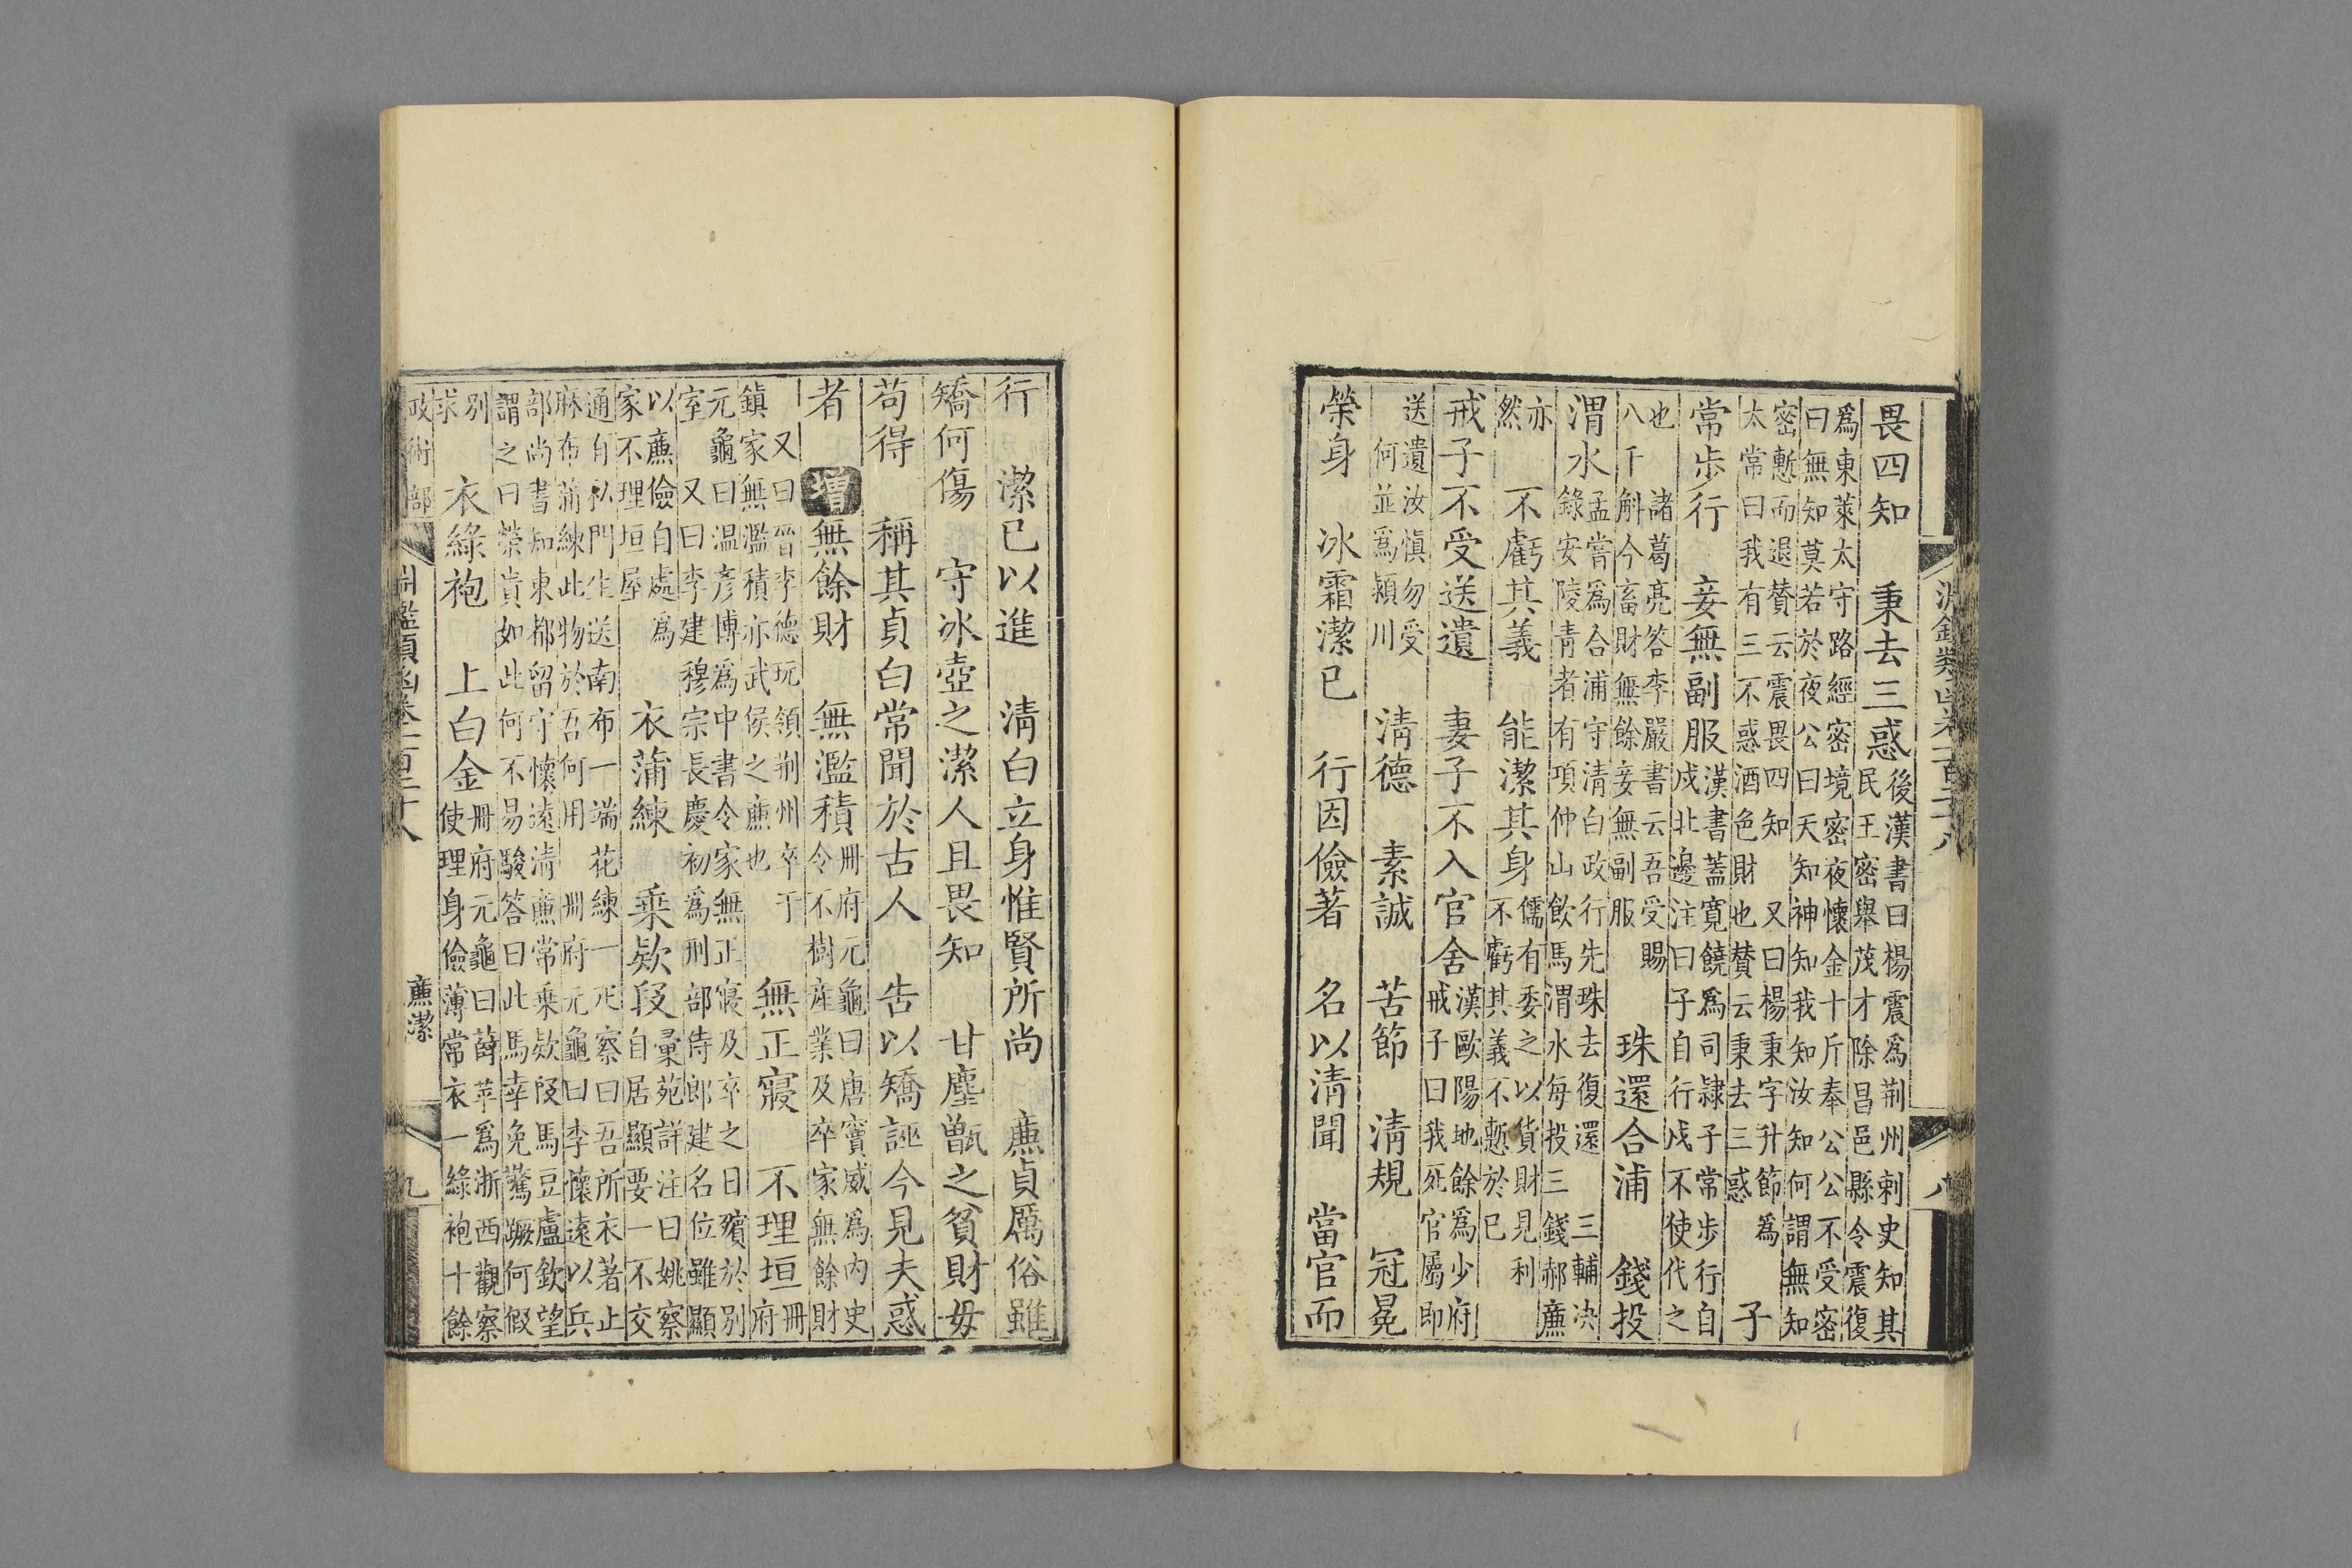 畏四知　秉去三惑後漢書曰楊震爲荆州刺史知其民王密舉茂才除昌邑縣令震復
爲東萊太守路經密境密夜懷金十斤奉公公不受密曰無知莫若於夜公曰天知神知我知汝知何謂無知
密慙而退賛云震畏四知　又曰楊秉字升節爲太常曰我有三不惑酒色財也賛云秉去三惑　子
常歩行　妾無副服漢書蓋寛饒爲司隷子常歩行自戍北邊注曰子自行戍不使代之
也　諸葛亮答李嚴書云吾受賜八千斛今畜財無餘妾無副服　珠還合浦　錢投
渭水孟嘗爲合浦守清白政行先珠去復還　三輔决錄安陵青者有項仲山飲馬渭水每投三錢郝廉
亦然　不虧其義　能潔其身儒有委之以貨財見利不虧其義不慙於已
戒子不受送遺　妻子不入官舍漢歐陽地餘爲少府戒子曰我死官屬即
送遺汝愼勿受　何並爲潁川　淸德　素誠　苦節　淸規　冠冕
榮身　冰霜潔已　行因儉著　名以淸聞　當官而
行　潔已以進　淸白立身惟賢所尚　亷貞厲俗雖
矯何傷　守冰壺之潔人且畏知　甘塵甑之貧財毋
苟得　稱其貞白常聞於古人　告以矯誣今見夫惑
者　增無餘財　無濫積冊府元龜曰唐竇威爲内史令不樹産業及卒家無餘財
又曰晉李德玩領荆州卒于鎭家無濫積亦武侯之亷也　無正寢　不理垣冊府
元龜曰温彦博爲中書令家無正寢及卒之日殯於別室　又曰李建穆宗長慶初爲刑部侍郎建名位雖顯
以亷儉自處爲家不理垣屋　衣蒲練　乗欵段彙苑詳注曰姚察自居顯要一不交
通有私門生送南布一端花練一疋察曰吾所衣著止麻布蒲練此物於吾何用　冊府元龜曰李懷遠以兵
部尚書知東都留守懷遠清亷常乗欵段馬豆盧欽望謂之曰榮貴如此何不易駿答曰此馬幸免驚蹶何假
別求　衣綠袍　上白金冊府元龜曰薛苹爲浙西觀察使理身儉薄常衣一綠袍十餘
政術部　淵鑑類函卷一百二十八　亷潔　九